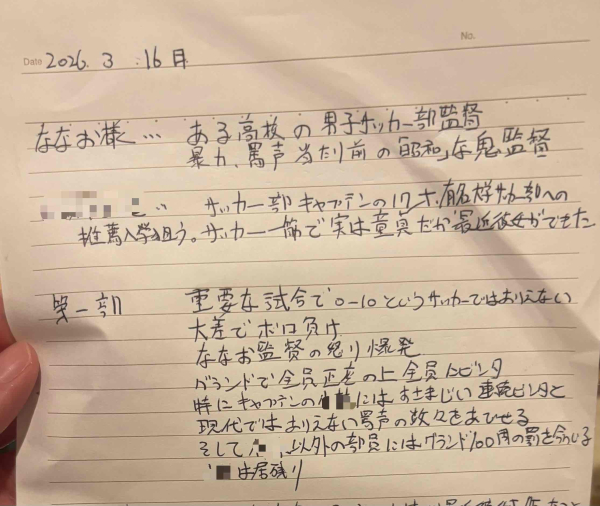 Date 2026. 3 . 16 月
No.
ななお様… ある高校の男子サッカー部監督
暴力、罵声当たり前の昭和な鬼監督
… サッカー部キャプテンの17才、有名大学サッカー部への
推薦入学狙う。サッカー一筋で実は童貞だが最近彼女ができた
第一部 重要な試合で0-10というサッカーではありえない
大差でボロ負け
ななお監督の怒り爆発
グランドで全員正座の上全員にビンタ
特にキャプテンの には おぞましい 連続ビンタと
現代ではありえない罵声の数々をあびせる
そして 以外の部員にはグランド100周の罰を命じる
は居残り